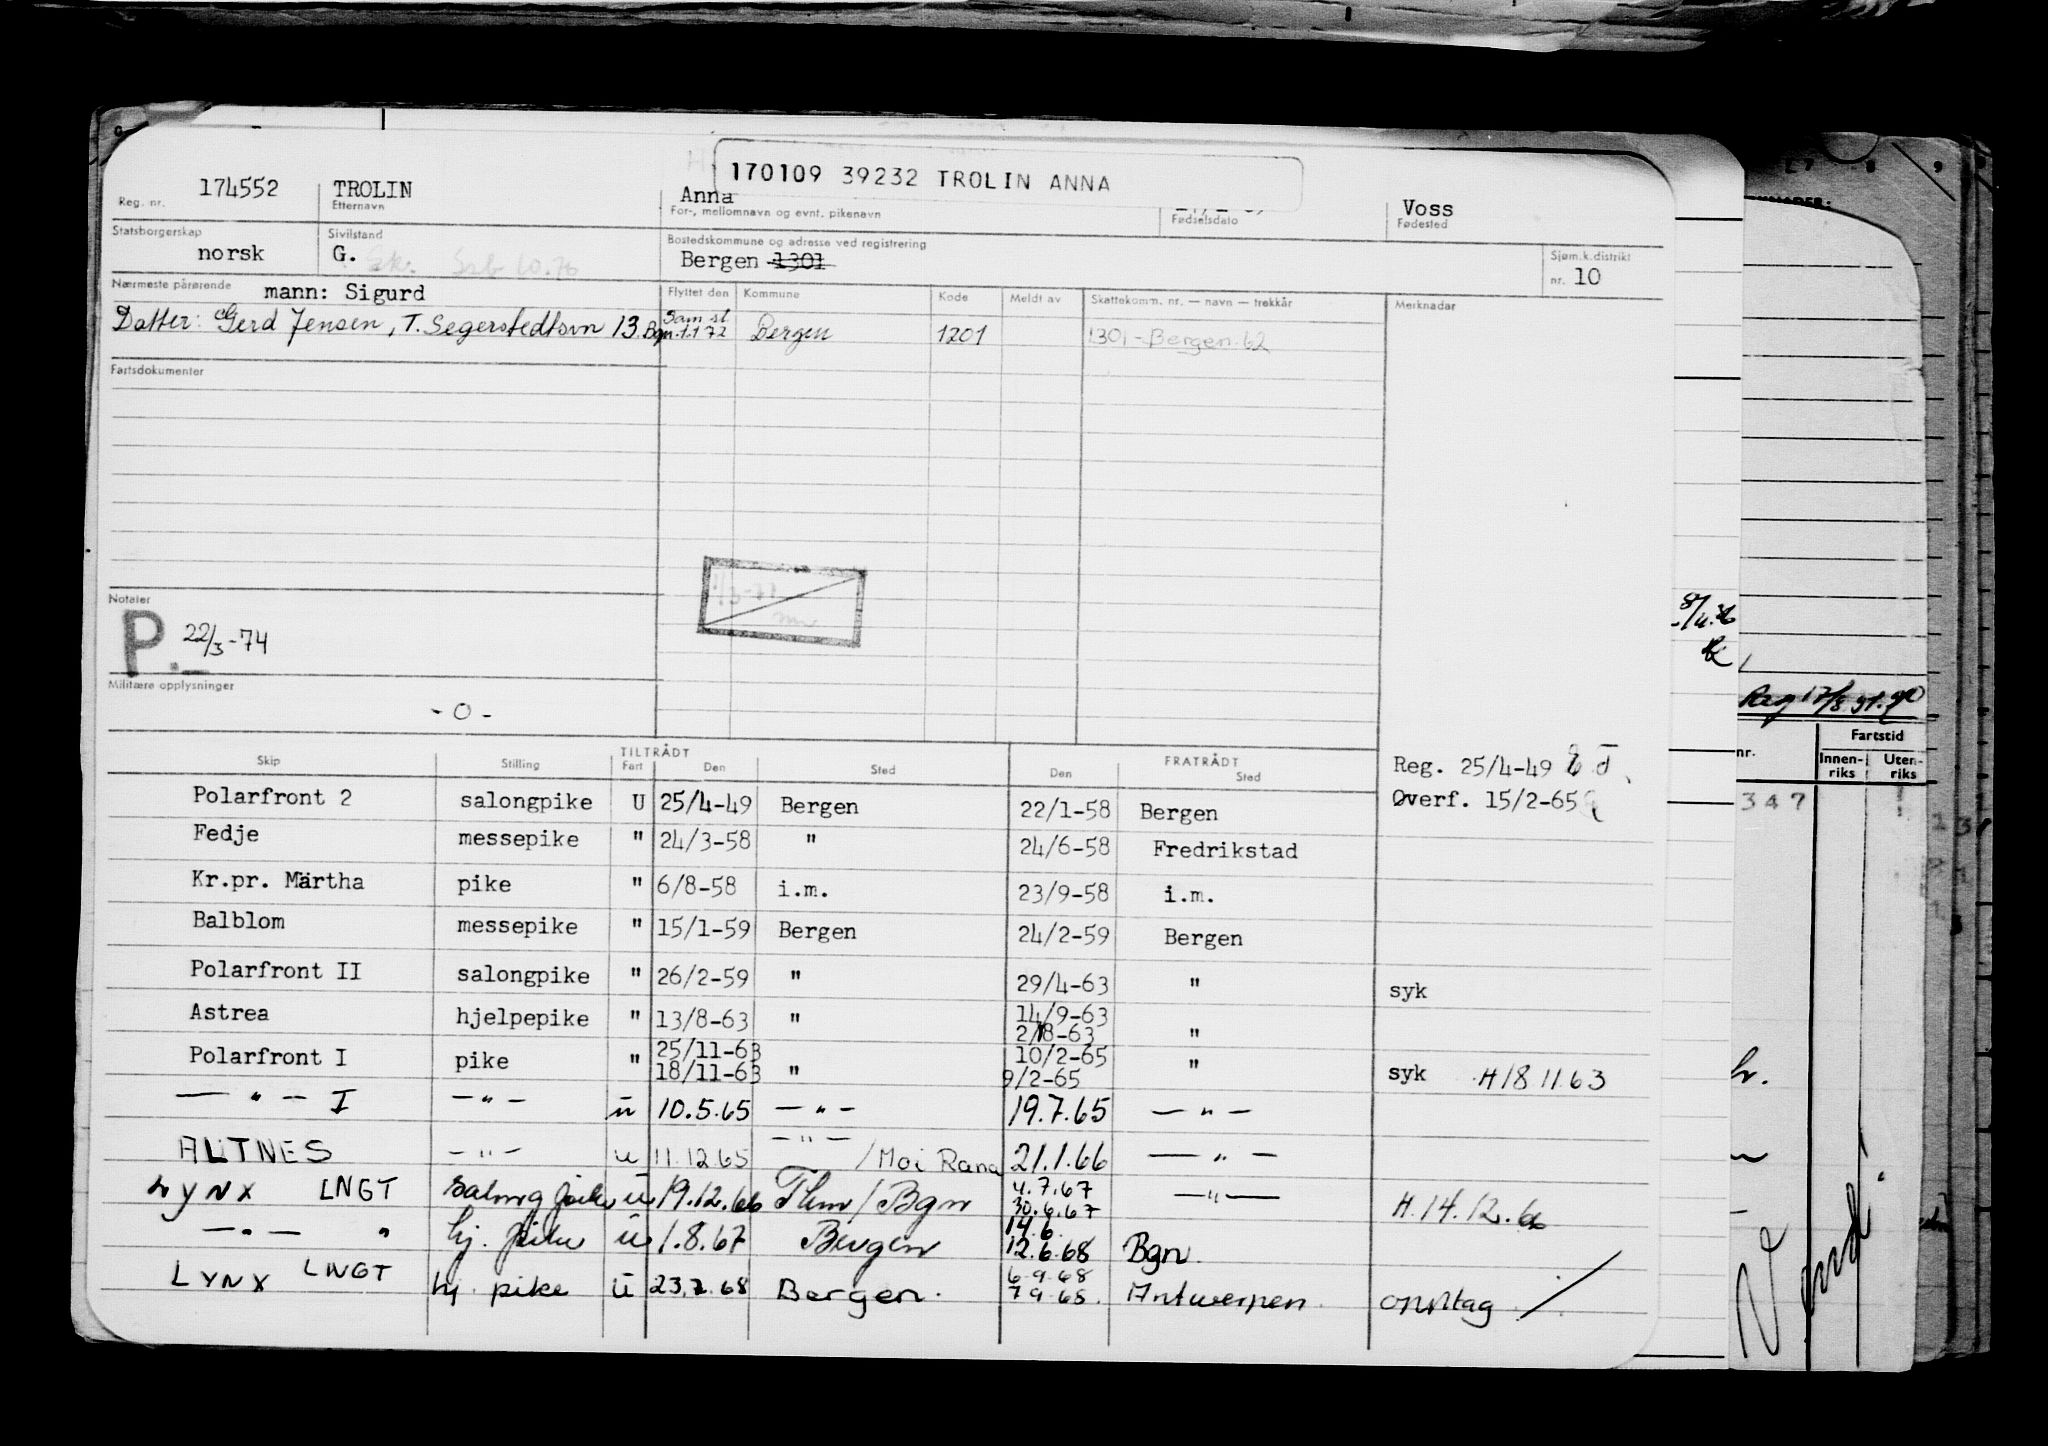 170109 39232 TROLIN ANNA
174552 TROLIN Anna Voss
Reg. nr. Etternavn For-, mellomnavn og evnt. pikenavn Fødselsdato Fødested
Statsborgerskap Sivilstand Bostedskommune og adresse ved registrering Sjøm.k.distrikt
norsk G. Bergen 1301 nr. 10
Nærmeste pårørende mann: Sigurd Flyttet den Kommune Kode Meldt av Skattekomm. nr. — navn — trekkår Merknadar
Datter: Gerd Jensen, T. Segerstedtsvn 13. Bgn. Sam st 1.1 72 Bergen 1201 1301 - Bergen 62
Fartsdokumenter
Notater
P. 22/3-74
Militære opplysninger
- 0 -
TILTRÅDT FRATRÅDT
Skip Stilling Fart Den Sted Den Sted
Reg. 25/4-49
Øverf. 15/2-65
Polarfront 2 salongpike U 25/4-49 Bergen 22/1-58 Bergen
Fedje messepike " 24/3-58 " 24/6-58 Fredrikstad
Kr.pr. Märtha pike " 6/8-58 i.m. 23/9-58 i.m.
Balblom messepike " 15/1-59 Bergen 24/2-59 Bergen
Polarfront II salongpike " 26/2-59 " 29/4-63 " syk
Astrea hjelpepike " 13/8-63 " 14/9-63 "
Polarfront I pike " 25/11-63 18/11-63 " 10/2-65 9/2-65 " syk H 18 11.63
— " — I — " — u 10.5.65 — " — 19.7.65 — " —
ALTNES — " — u 11.12.65 — " — / Moi Rana 21.1.66 — " —
LYNX LNGT salong pike u 19.12.66 / Bgn 4.7.67 30.6.67 — " — H. 14.12.66
— " — " hj. pike u 1.8.67 Bergen 14.6. 12.6.68 Bgn.
LYNX LNGT hj. pike u 23.7.68 Bergen. 6.9.68 7.9.68. Antwerpen.
Reg
nr. Fartstid
Innen-riks Uten-riks
347